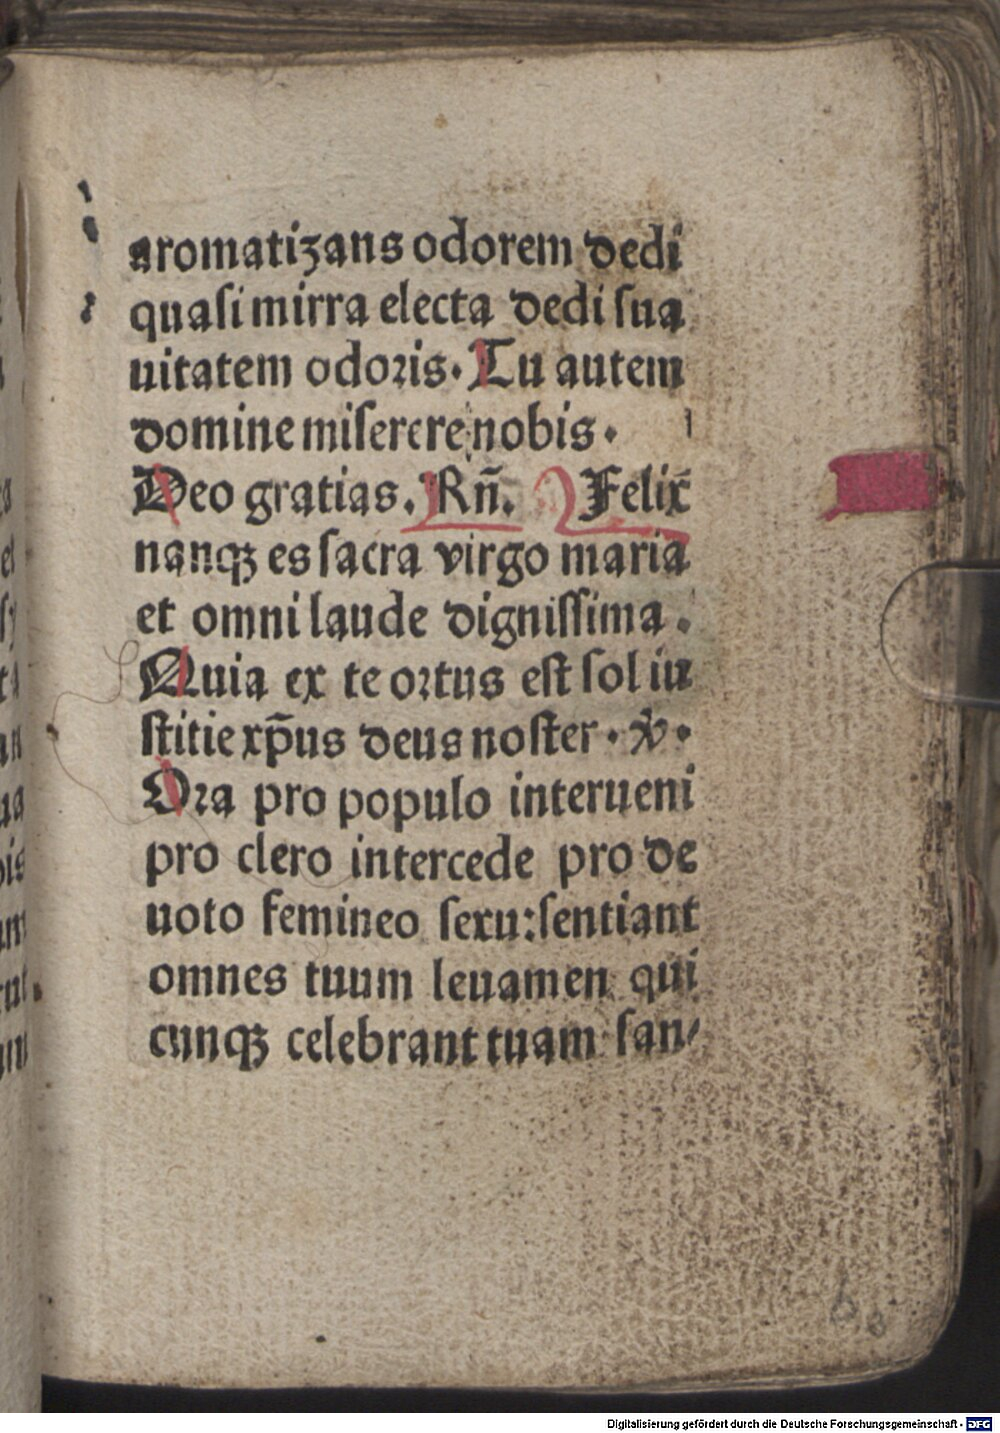 aromatiꝫans odorem dedi
quaſi mirra electa dedi ſua
uitatem odoꝛis. Tu autem
domine miſerere nobis.
Deo gratias. Rñ. Felix̄
nanqꝫ es ſacra virgo maria
et omni laude digniſſima.
Quia ex te oꝛtus eſt ſol iu
ſtitie xp̄us deus noſter. ℣.
Oꝛa pro populo interueni
pro clero intercede pro de
uoto femineo ſexu:ſentiant
omnes tuum leuamen qui
cunqꝫ celebrant tuam ſan⸗
Digitalisierung gefördert durch die Deutsche Forschungsgemeinschaft - DFG